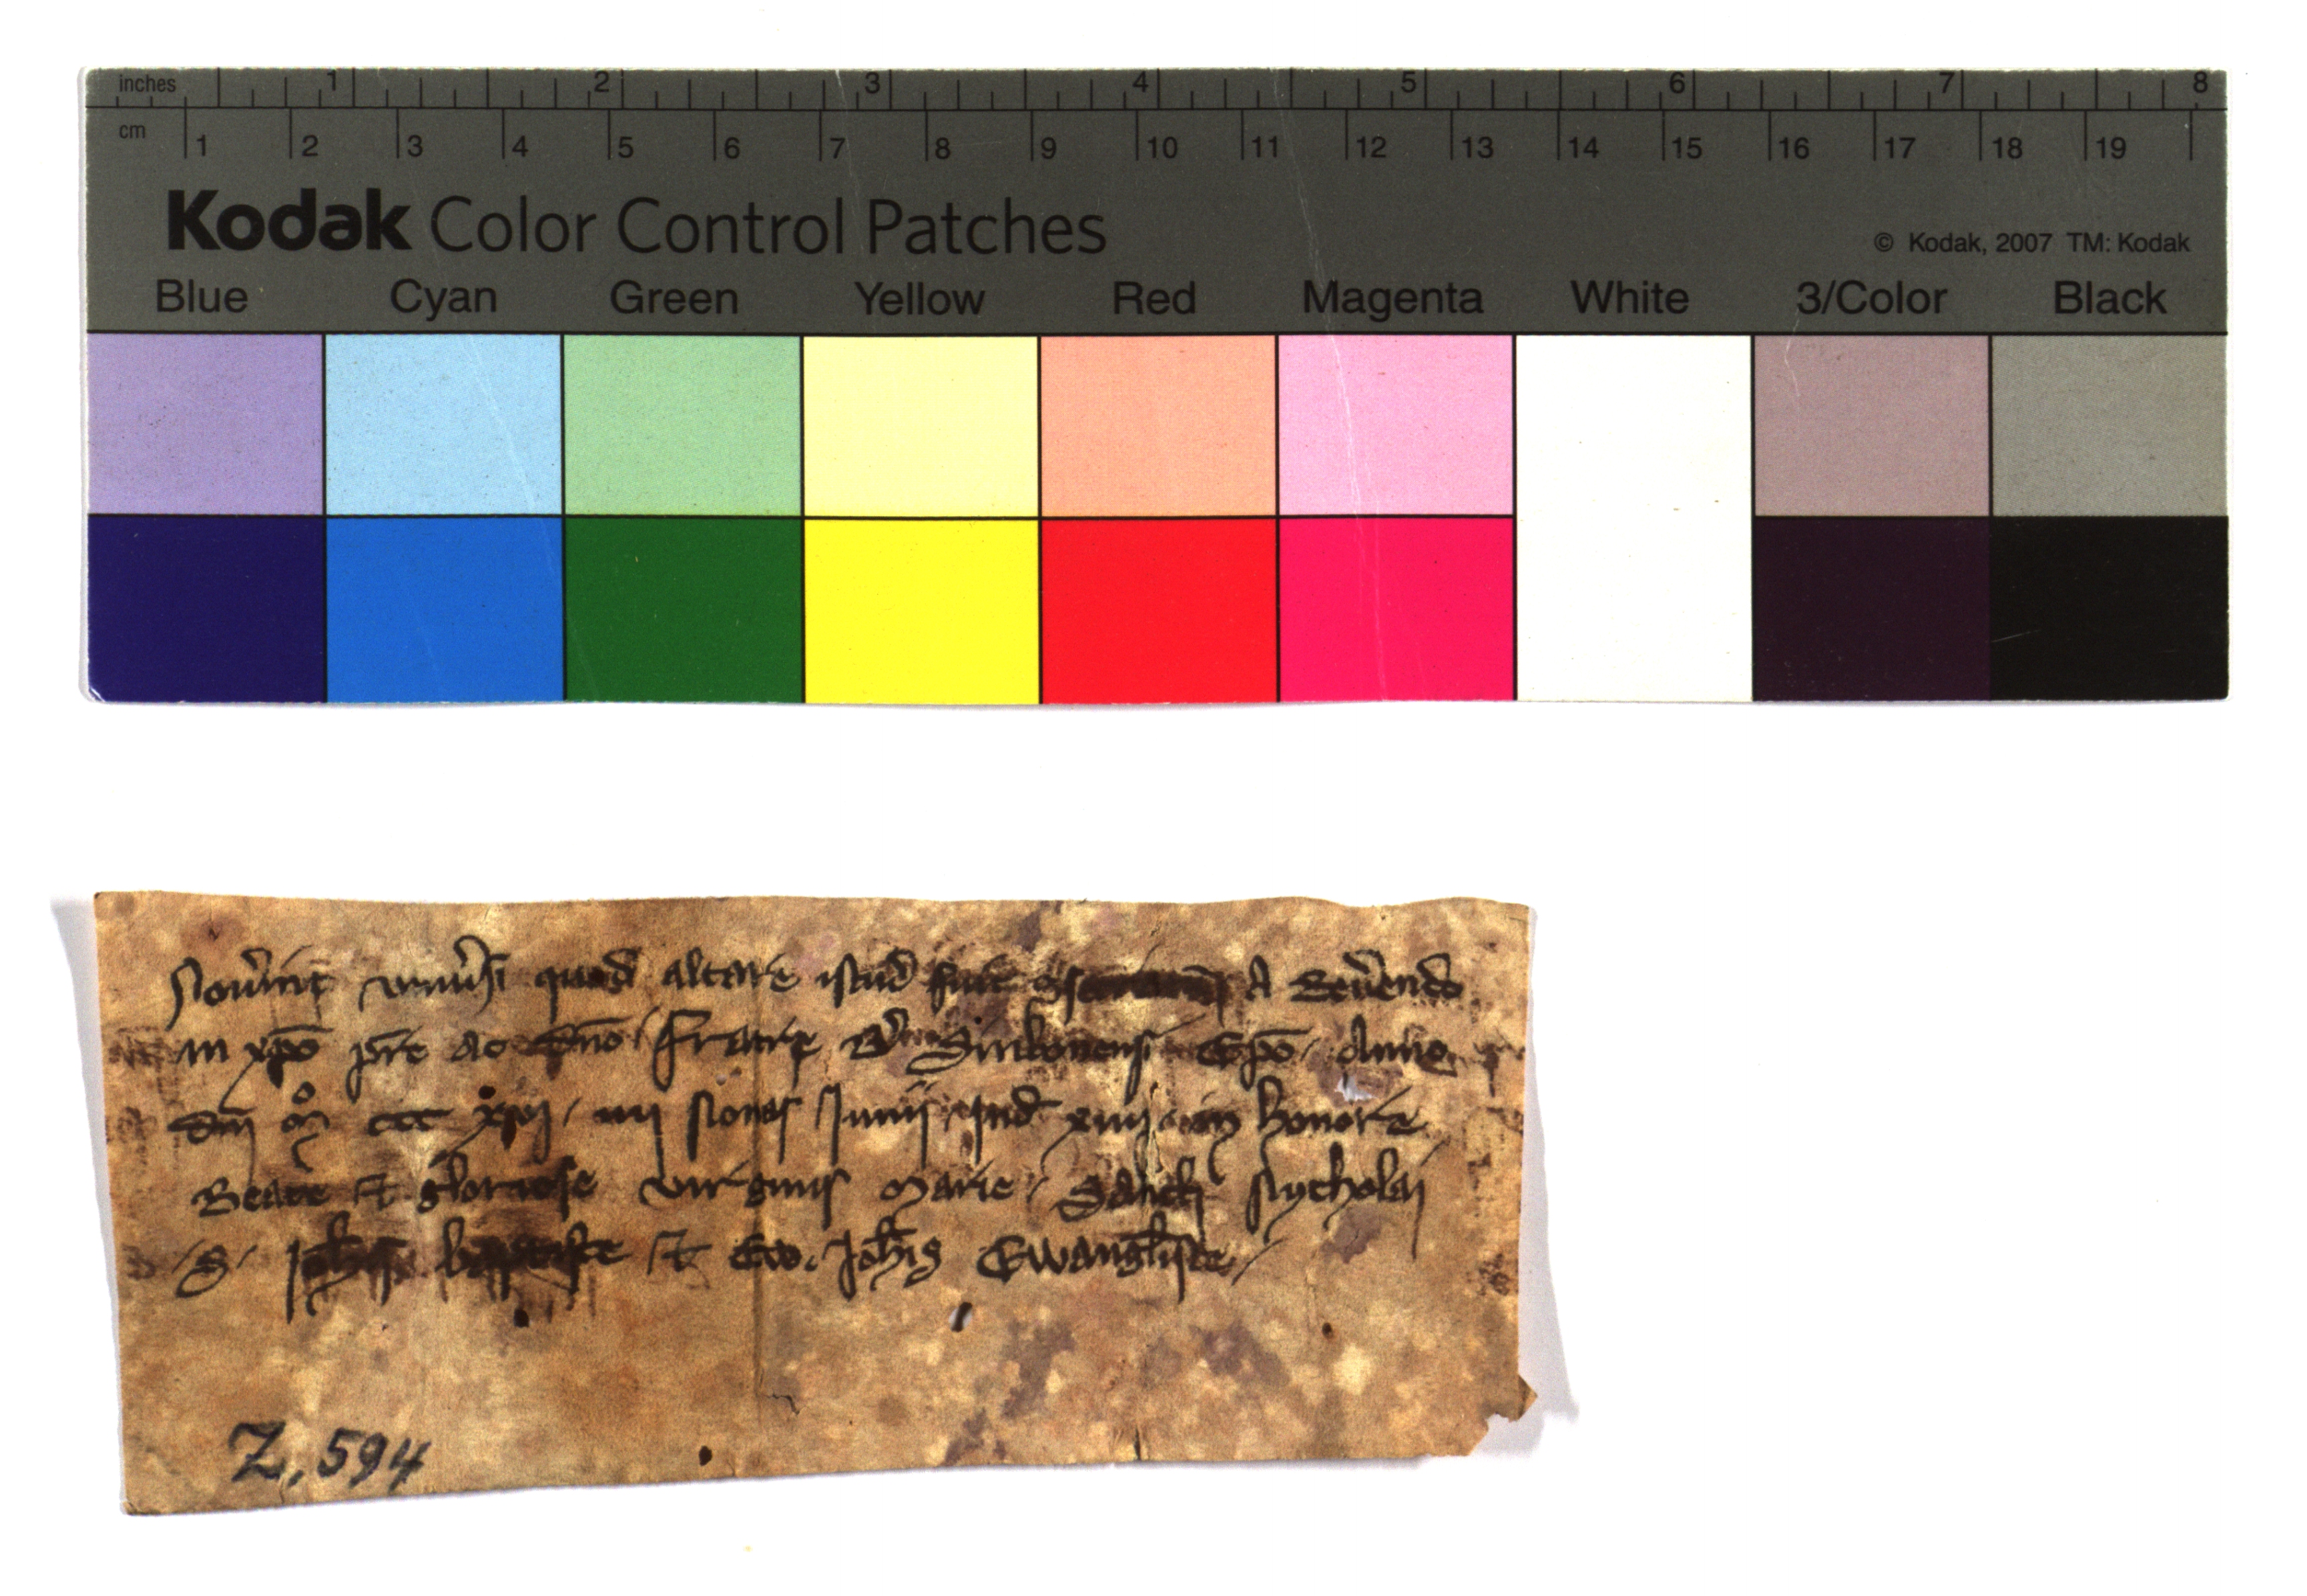 inches 1 2 3 4 5 6 7 8
cm 1 2 3 4 5 6 7 8 9 10 11 12 13 14 15 16 17 18 19
Kodak Color Control Patches
© Kodak, 2007 TM: Kodak
Blue Cyan Green Yellow Red Magenta White 3/Color Black
quod altare istud fuit A Reu'endo
in xpo pre ac dno Fratre Epo Anno
dni mo ccc nonas Junij in honore
Beate et gloriose virginis Marie Sancti Nycholai
S. Joh'is baptiste et Joh'is Ewangliste
Z, 594